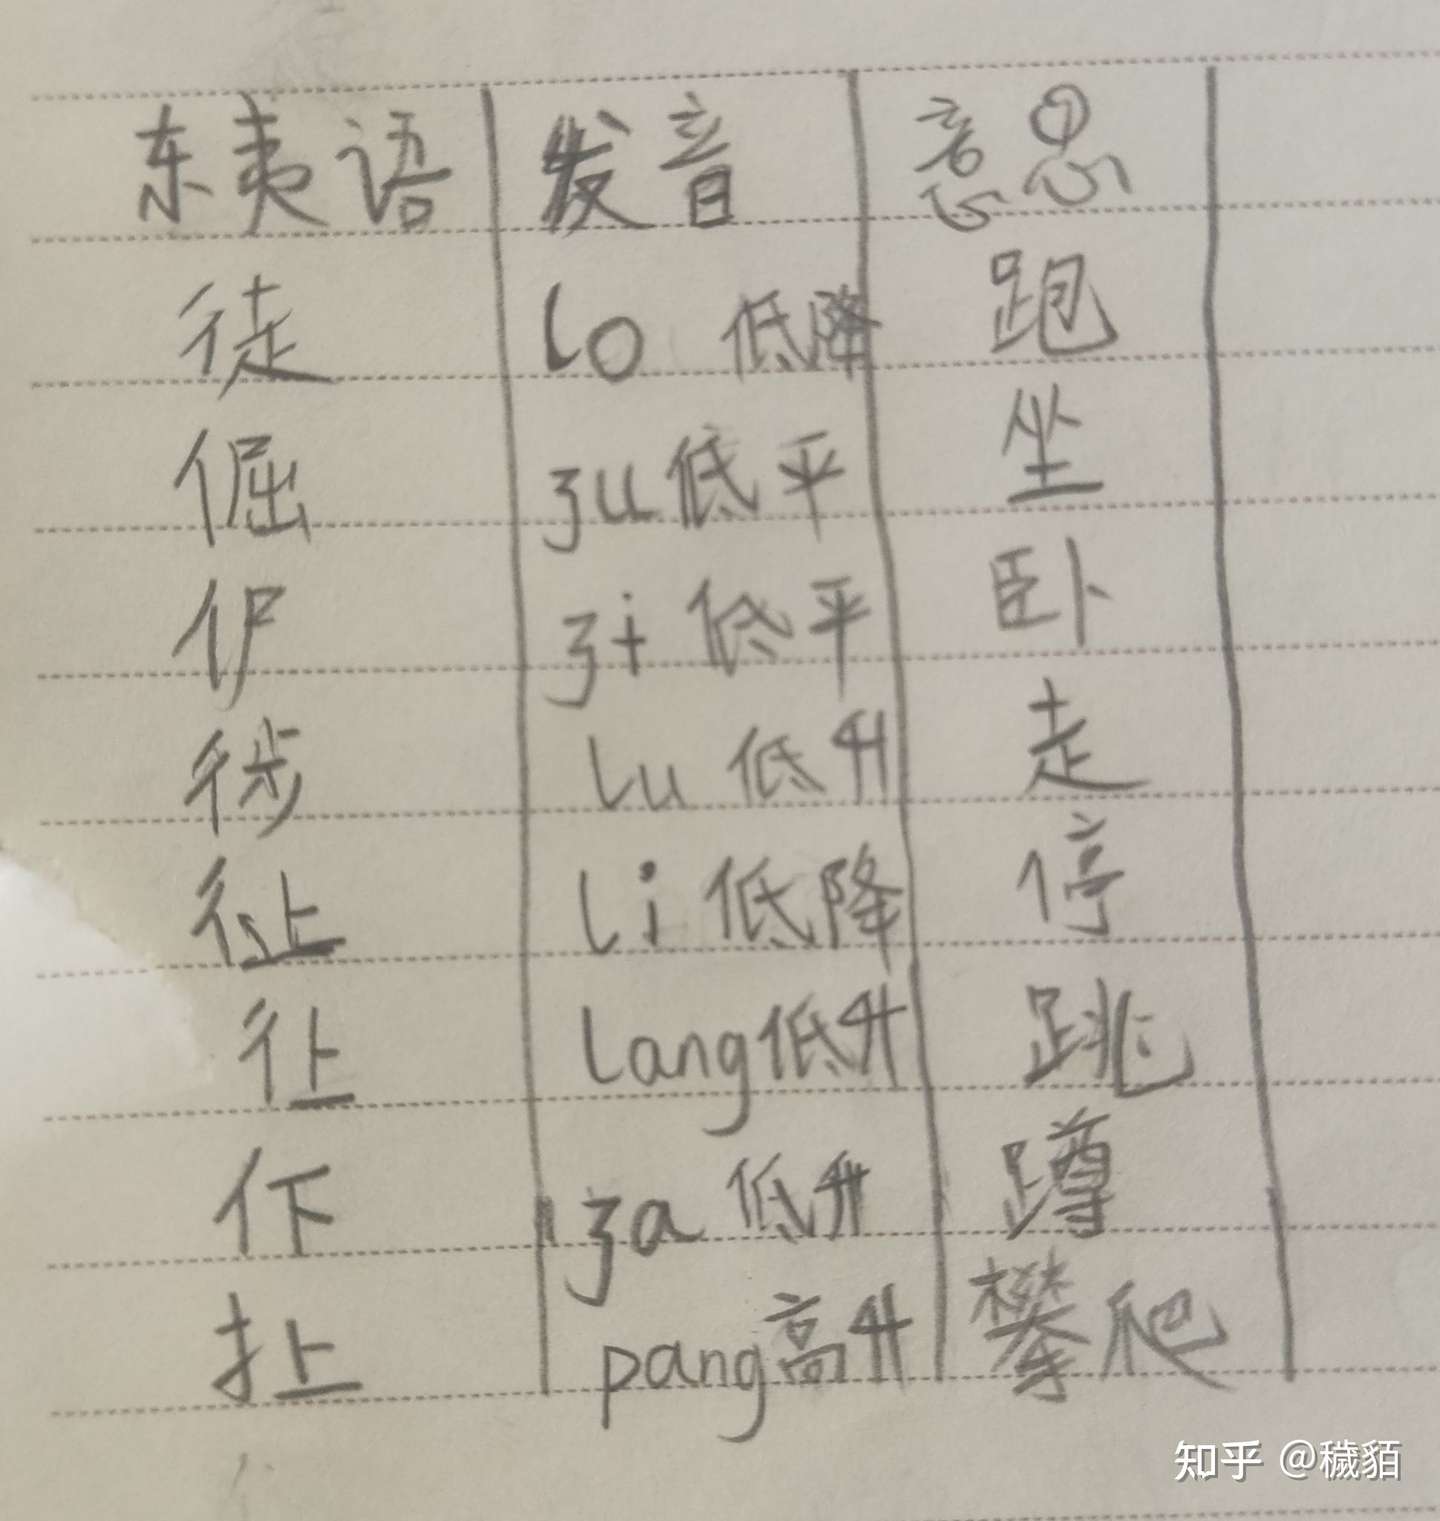 东夷语 发音 意思
徒 lo 低降 跑
倔 ʒu 低平 坐
ʒi 低平 卧
徏 lu 低升 走
li 低降 停
lang 低升 跳
ʒa 低升 蹲
pang 高升 攀爬
知乎 @穢貊